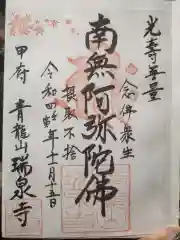 光壽無量
念佛衆生
南無阿弥陀佛
摂取不捨
令和四年十一月十五日
甲府 青龍山 瑞泉寺